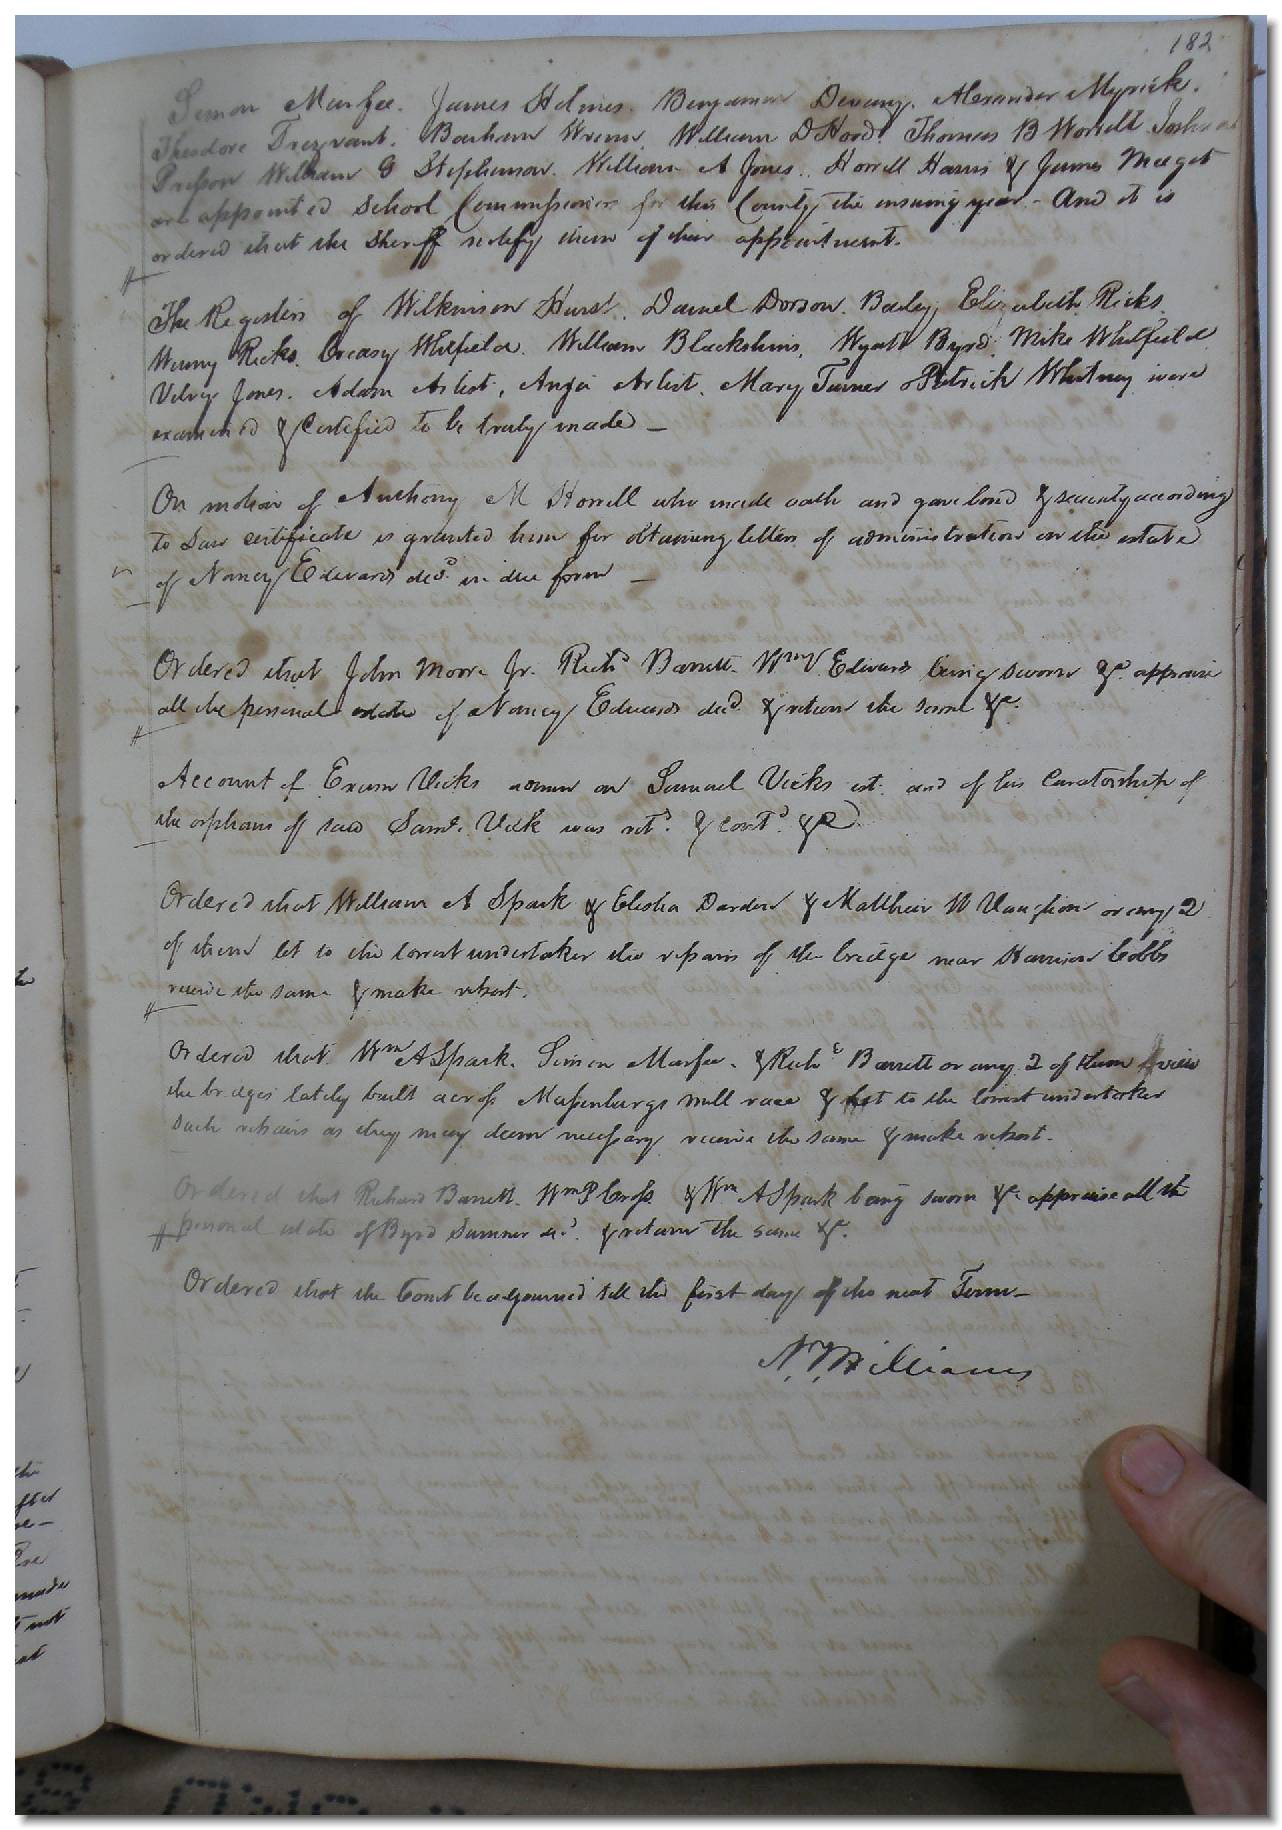 182
Simon Murfee. James Holmes. Benjamin Devany. Alexander Myrick.
Theodore Trezvant. Barham Wrenn. William D Hood. Thomas B Worrell Joshua
William G Stephenson. William A Jones. Horrell Harris & James Maget
are appointed School Commissioners for this County the ensuing year - And it is
ordered that the Sheriff notify them of their appointment.
The Registers of Wilkinson Hurst. Daniel Dorson. Baily, Elizabeth Ricks.
Winny Ricks. Creasy Whitfield. William Blackshins, Wyatt Byrd. Mike Whitfield
Jones. Adam Artist, Anja Artist. Mary Turner & Patrick Whitney were
examined & Certified to be truly made -
On motion of Anthony M Horrell who made oath and gave bond & security according
to Law certificate is granted him for obtaining letters of administration on the estate
of Nancy Edwards decd. in due form -
Ordered that John Moore Jr. Richd Barrett. Wm V. Edwards being sworn &c. appraise
all the personal estate of Nancy Edwards decd. & return the same &c.
Account of Exum Vicks admn on Samuel Vicks est. and of his Curatorship of
the orphans of said Saml. Vick was retd. & contd. &c
Ordered that William A Spark & Elisha Darden & Matthew W Vaughan or any 2
of them let to the lowest undertaker the repairs of the bridge near Harrison Cobbs
receive the same & make report.
Ordered that Wm A Spark. Simon Murfee. & Richd Barrett or any 2 of them view
the bridges lately built across Massenburgs mill race & let to the lowest undertaker
such repairs as they may deem necessary receive the same & make report.
Ordered that Richard Barrett. Wm P Cross & Wm A Spark being sworn &c appraise all the
personal estate of Byrd Sumner decd. & return the same &c.
Ordered that the Court be adjourned till the first day of the next Term -
N. Williams